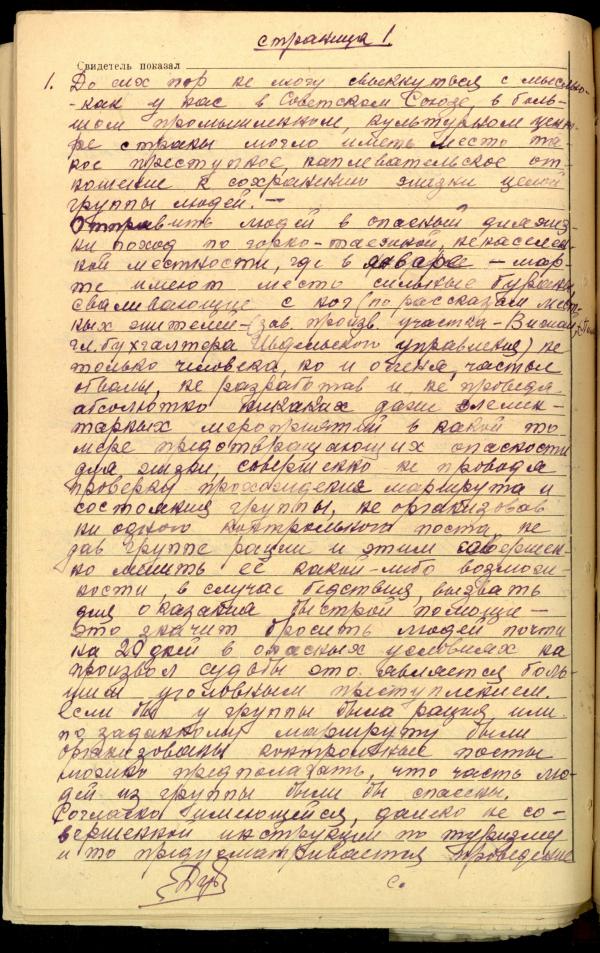 страница 1.
Свидетель показал
1. До сих пор не могу свыкнуться с мыслью-
-как у нас в Советском Союзе, в боль-
шом промышленном, культурном цент-
ре страны могло иметь место та-
кое преступное, наплевательское от-
ношение к сохранению жизни целой
группы людей! —
Отправить людей в опасный для жиз-
ни поход по горно-таежной, ненаселен-
ной местности, где в январе - мар-
те имеют место сильные бураны,
сваливающие с ног (по рассказам мест-
ных жителей-(зав. произв. участка-
гл. бухгалтера Ивдельского управления) не
только человека, но и оленя, частые
обвалы, не разработав и не проведя
абсолютно никаких даже элемен-
тарных мероприятий в какой то
мере предотвращающих опасности
для жизни, совершенно не проводя
проверку прохождения маршрута и
состояния группы, не организовав
ни одного контрольного поста, не
дав группе рации и этим совершен-
но лишить её какой-либо возмож-
ности, в случае бедствия, вызвать
для оказания быстрой помощи —
это значит бросить людей почти
на 20 дней в опасных условиях на
произвол судьбы это является боль-
шим уголовным преступлением.
Если бы у группы была рация или
по заданному маршруту были
организованы контрольные посты
можно предполагать, что часть лю-
дей из группы были бы спасены.
Согласно имеющейся, далеко не со-
вершенной инструкции по туризму
и то предусматривается проведение